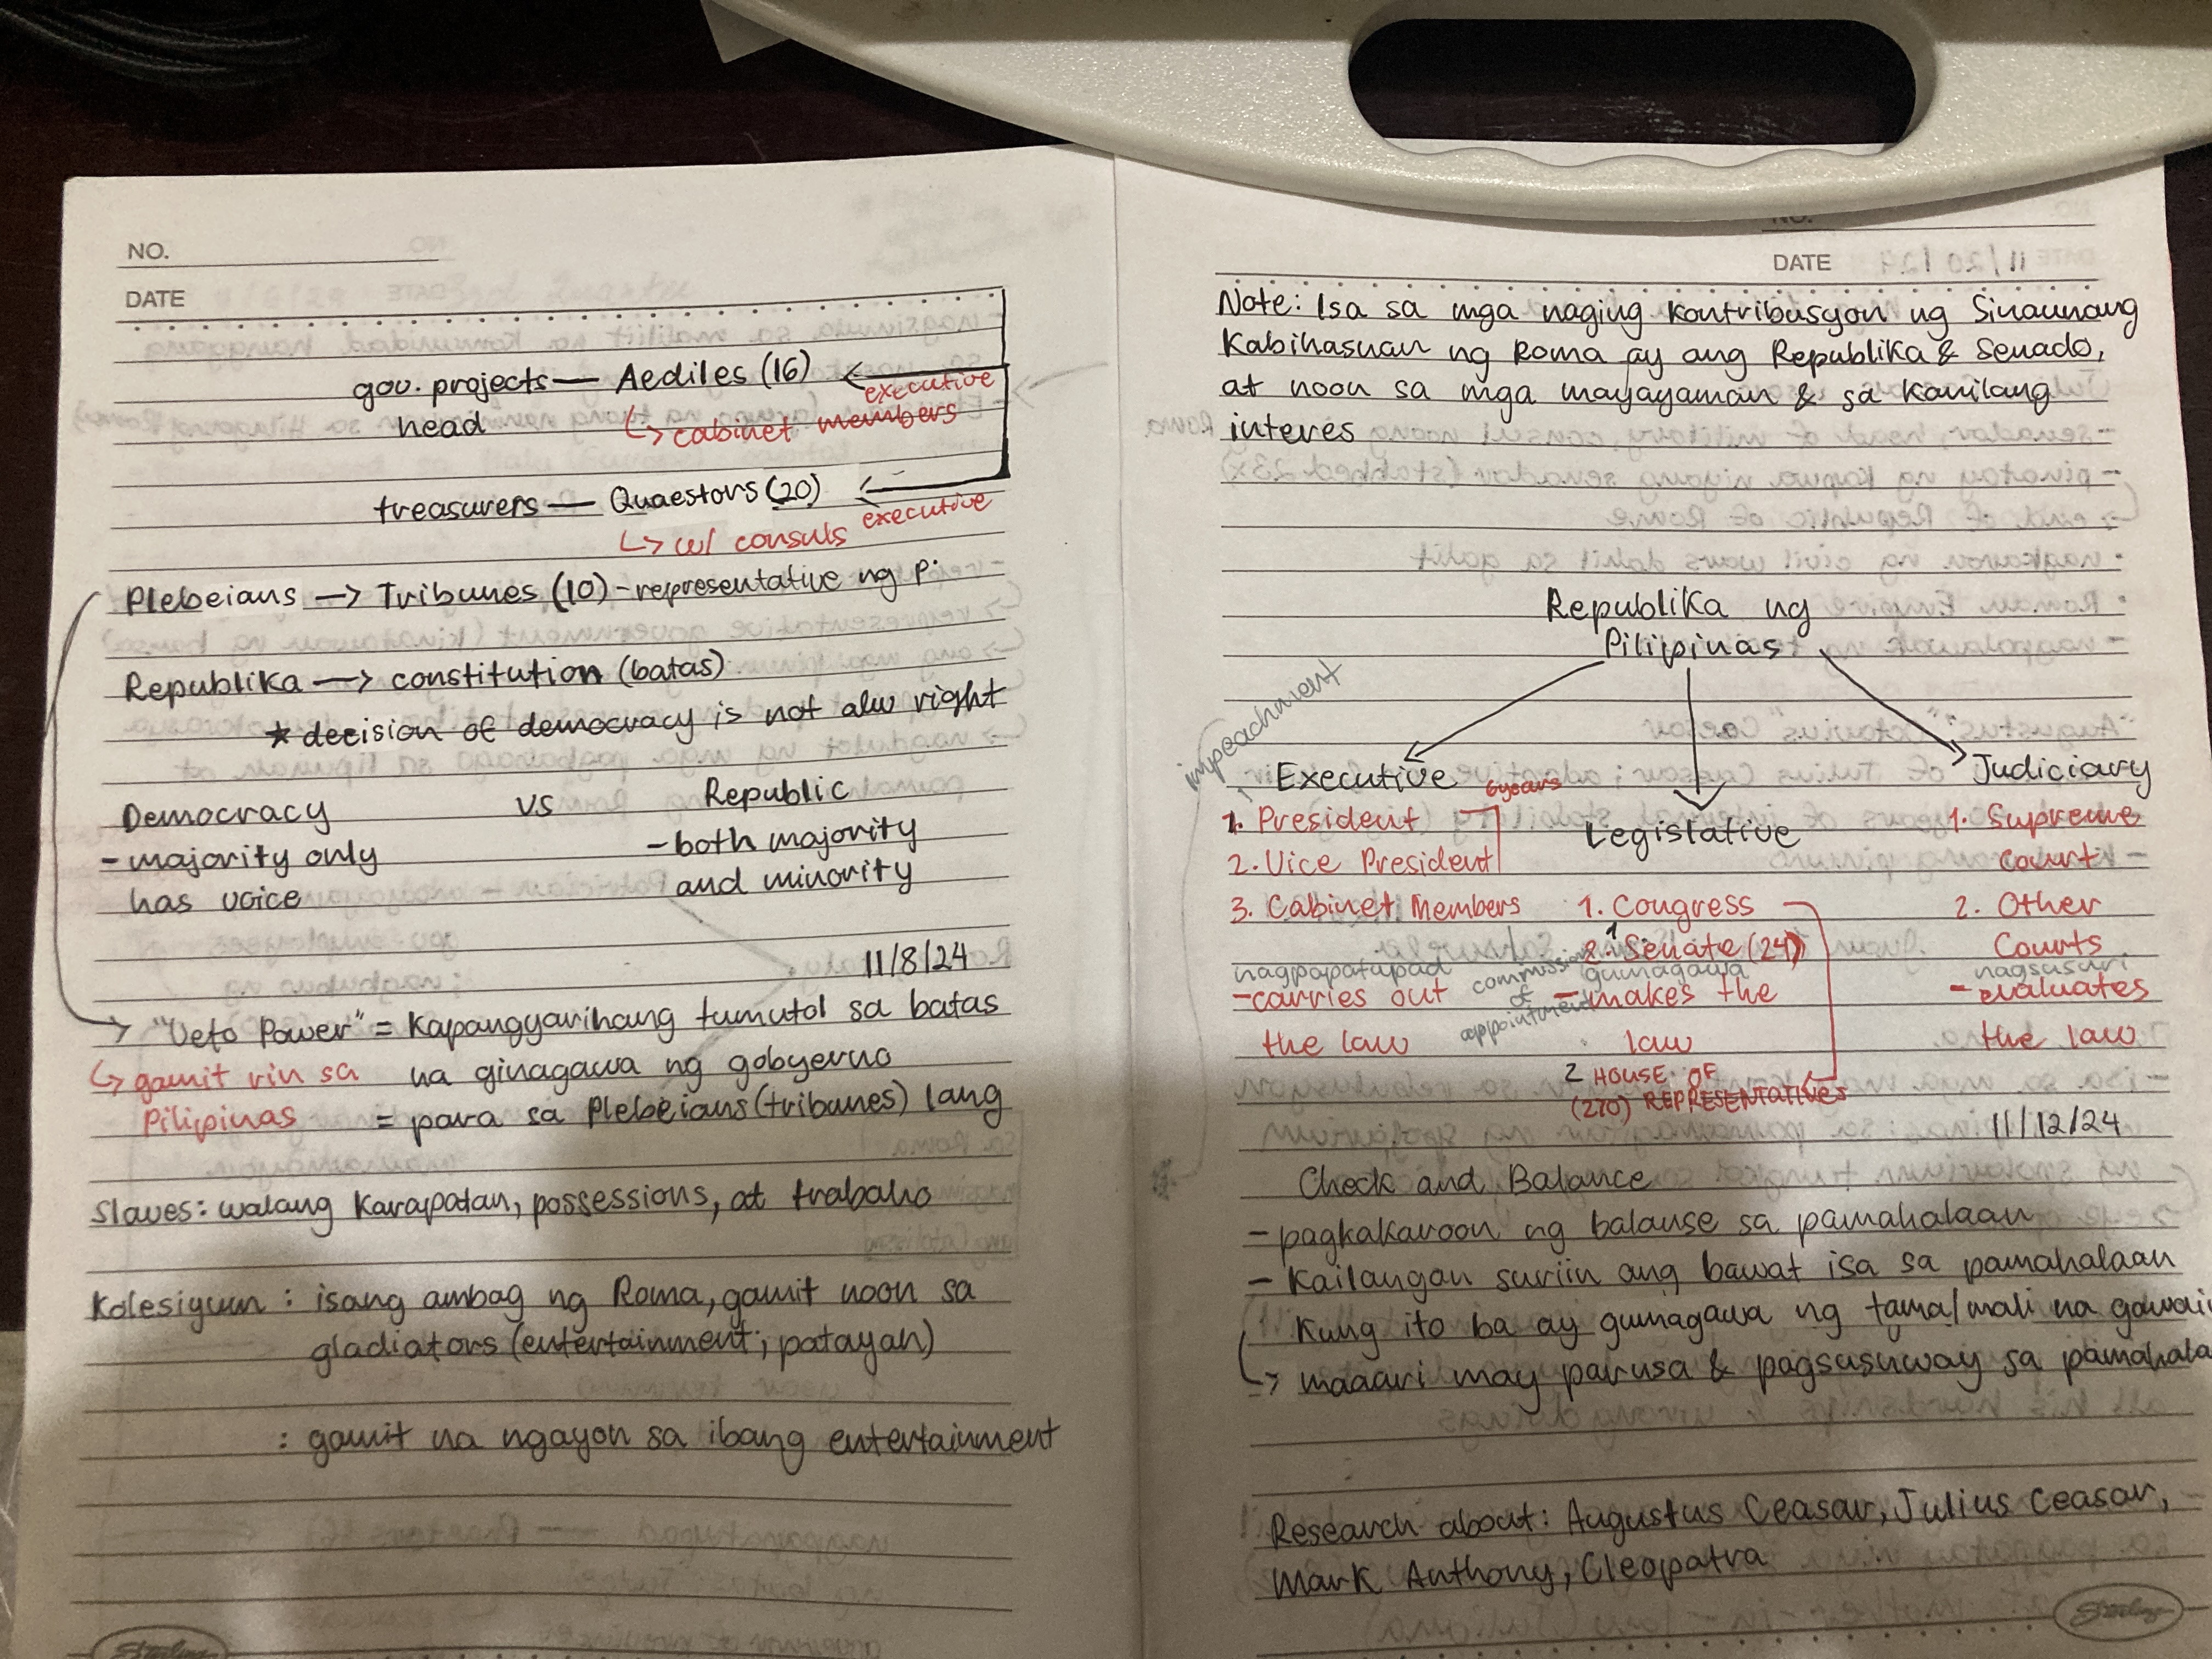 NO.
DATE
gov. projects — Aediles (16) executive
head ↳ cabinet members
treasurers — Quaestors (20)
↳ w/ consuls executive
Plebeians → Tribunes (10) - representative ng P.
Republika → constitution (batas)
* decision of democracy is not alw right
Democracy vs Republic
- majority only - both majority
has voice and minority
11/8/24
→ "Veto Power" = kapangyarihang tumutol sa batas
↳ gamit rin sa na ginagawa ng gobyerno
Pilipinas = para sa plebeians (tribunes) lang
Slaves: walang karapatan, possessions, at trabaho
Kolesiyum : isang ambag ng Roma, gamit noon sa
gladiators (entertainment; patayan)
: gamit na ngayon sa ibang entertainment
DATE
Note: Isa sa mga naging kontribusyon ng Sinaunang
Kabihasnan ng Roma ay ang Republika & Senado,
at noon sa mga mayayaman & sa kanilang
interes
Republika ng
Pilipinas
impeachment
Executive Legistative Judiciary
1. President 6 years
2. Vice President
3. Cabinet Members
nagpapatupad
- carries out
the law
commission
of
appointment
1. Congress
1 2. Senate (24)
gumagawa
- makes the
law
2 HOUSE OF
(270) REPRESENTATIVES
1. Supreme
Court
2. Other
Courts
nagsusuri
- evaluates
the law
11/12/24
Check and Balance
- pagkakaroon ng balanse sa pamahalaan
- Kailangan suriin ang bawat isa sa pamahalaan
kung ito ba ay gumagawa ng tama/mali na gawain
↳ maaari may parusa & pagsusuway sa pamahala
Research about: Augustus Ceasar, Julius Ceasar,
Mark Anthony, Cleopatra